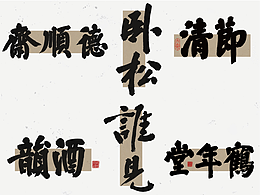 德順齋
卧松
節清
酒韻
誰見
鶴年堂